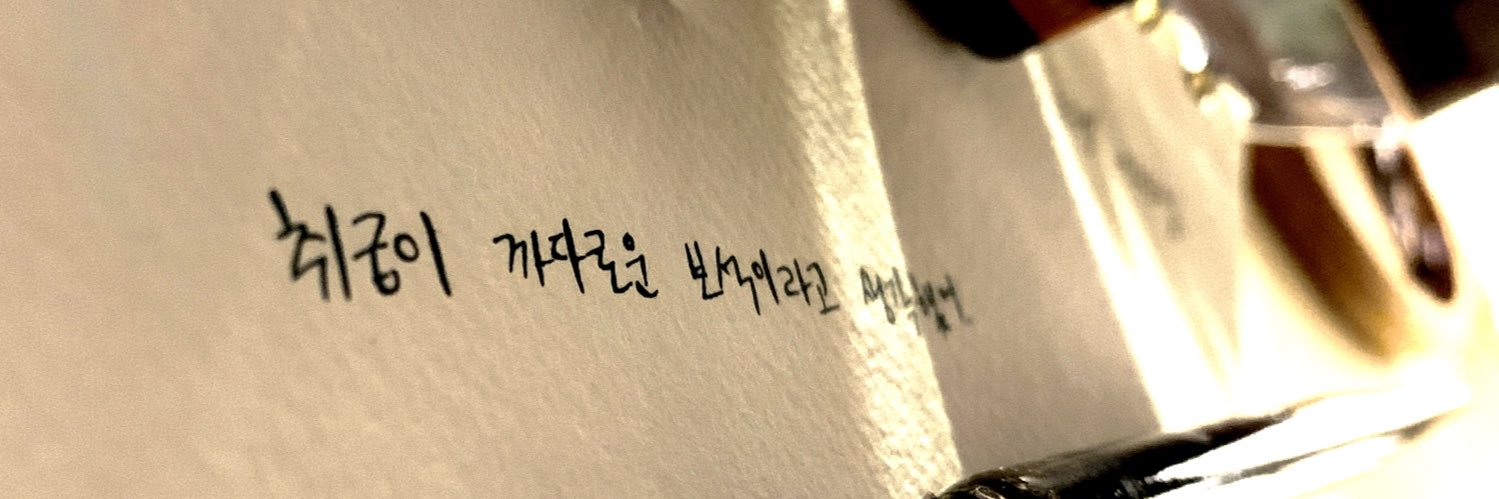 취급이 까다로운 보석이라고 생각했어.